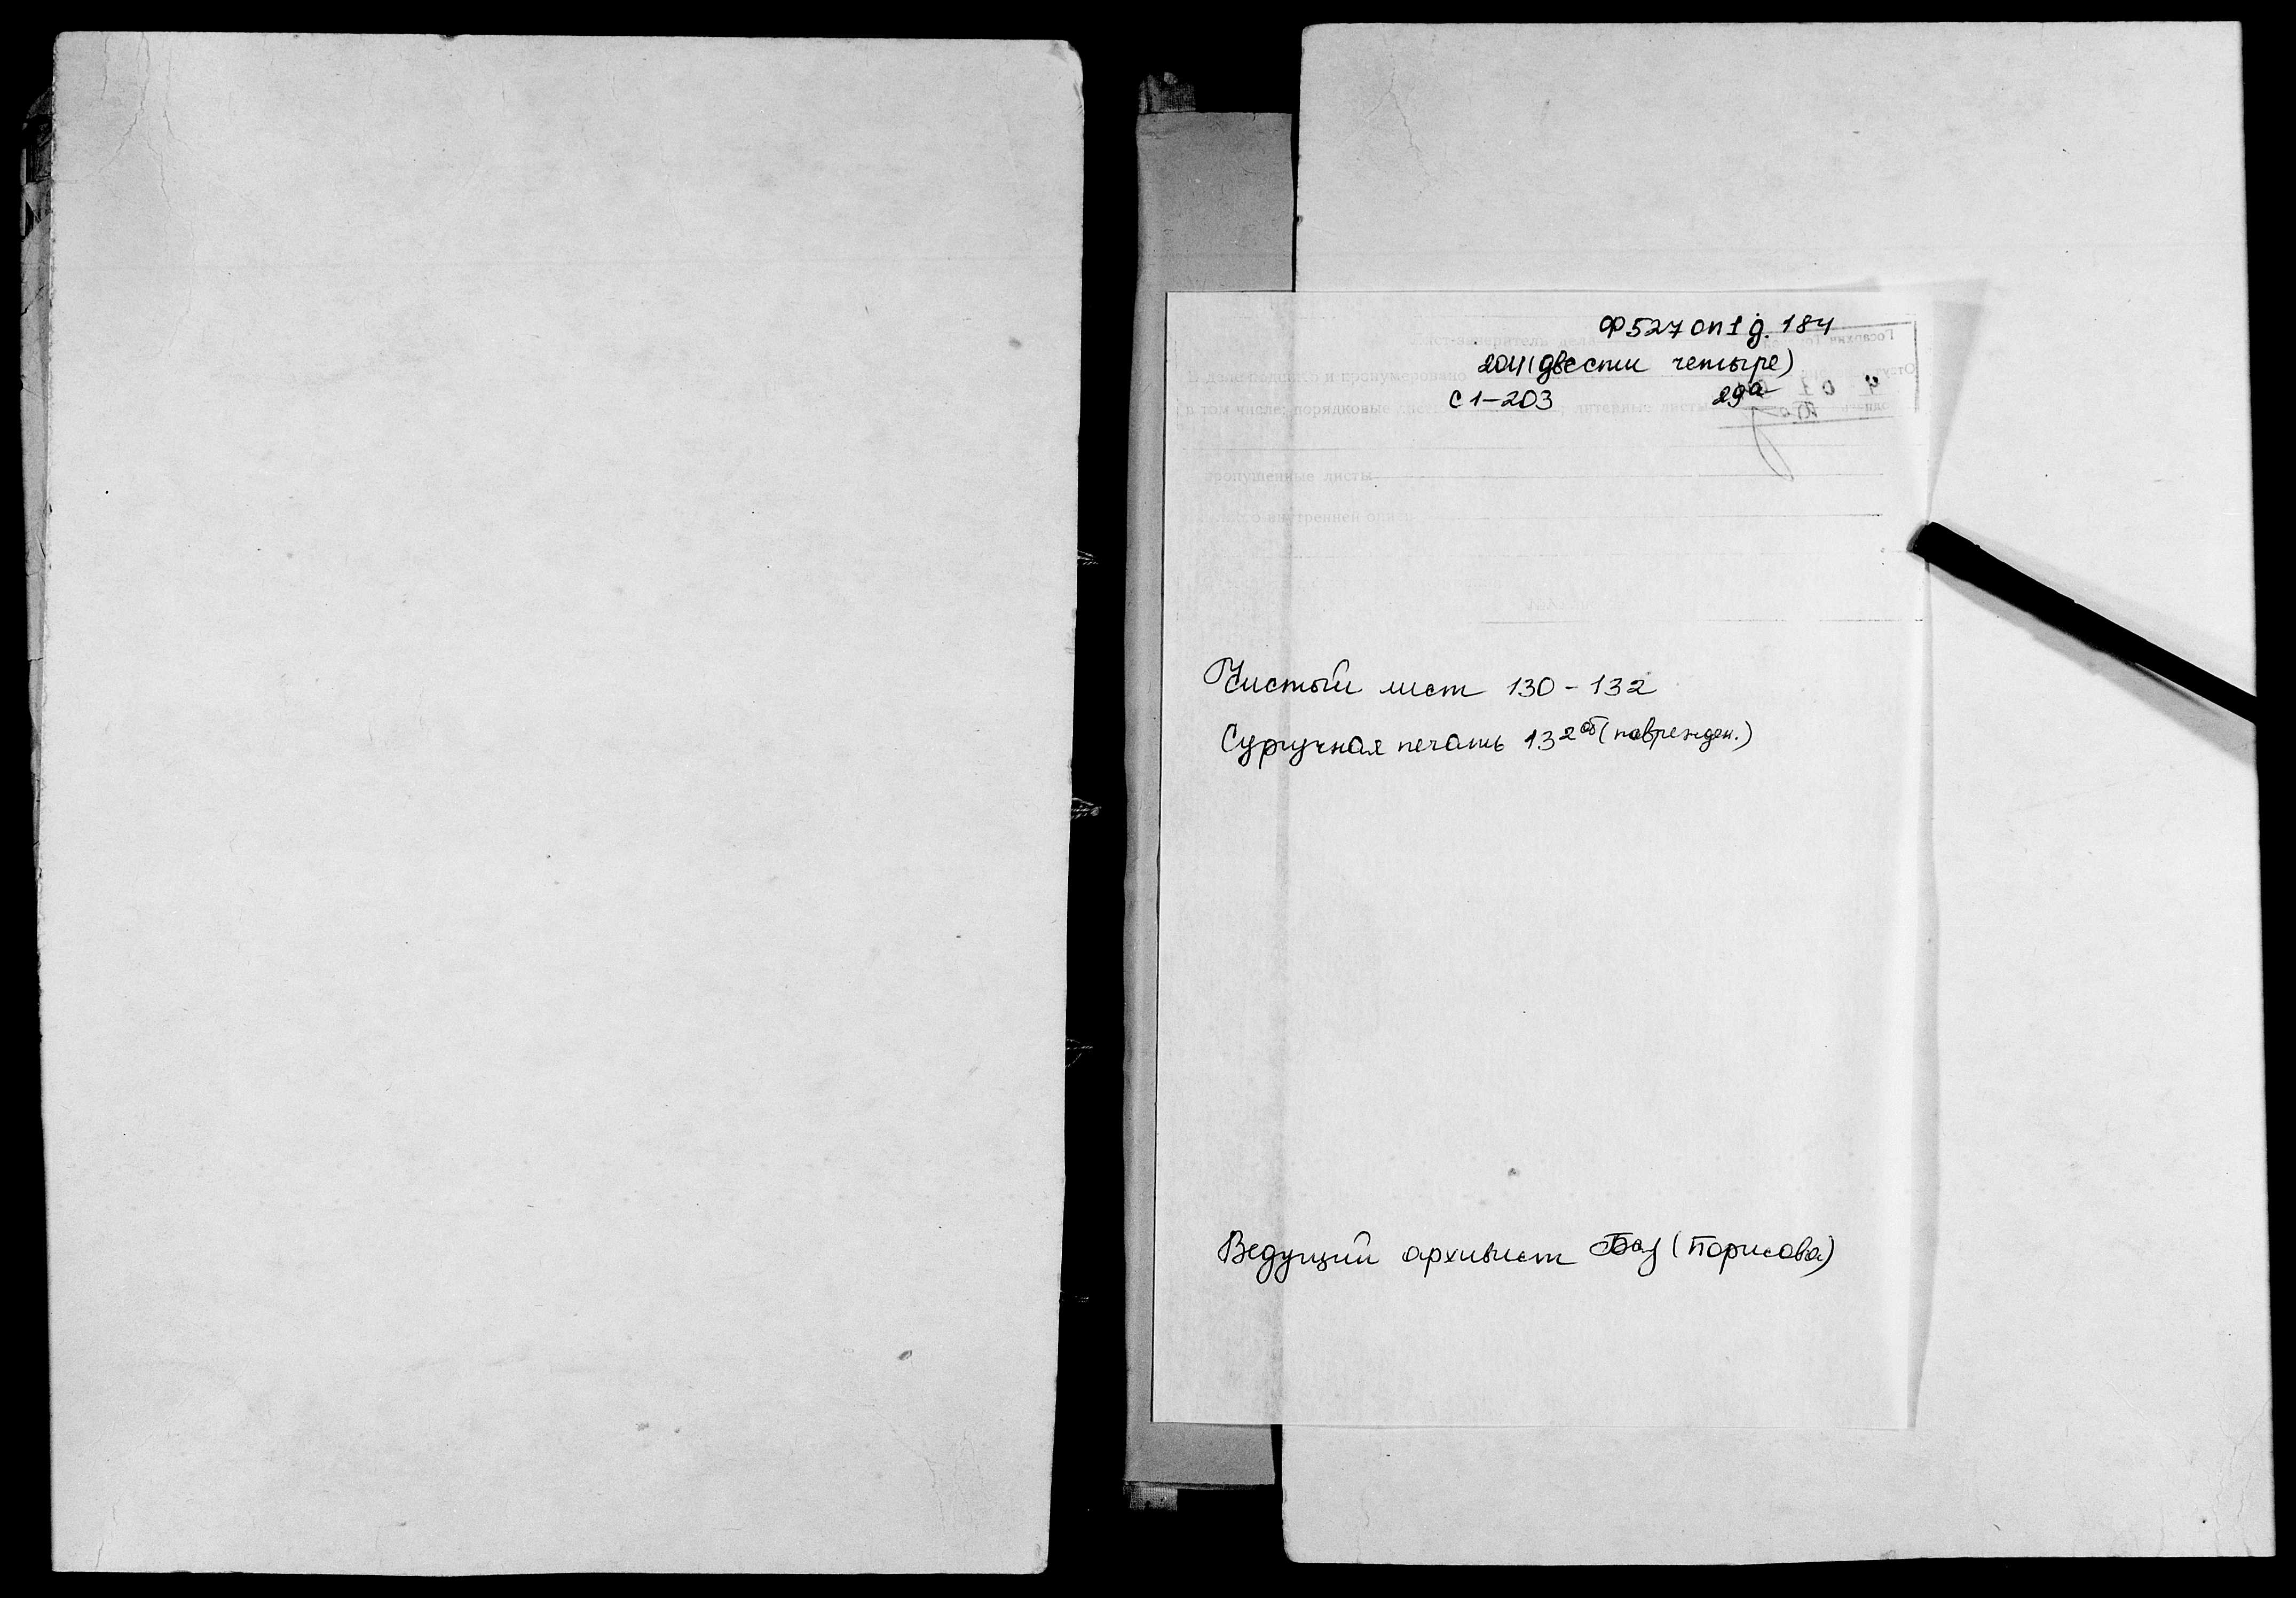 Ф 527 оп 1 д. 184
Лист-заверитель дела
204 (двести четыре)
В деле подшито и пронумеровано
с 1-203 29а
в том числе: порядковые листы ; литерные листы
пропущенные листы
внутренней описи
Чистый лист 130-132
Сургучная печать 132об (поврежден.)
Ведущий архивист (Борисова)